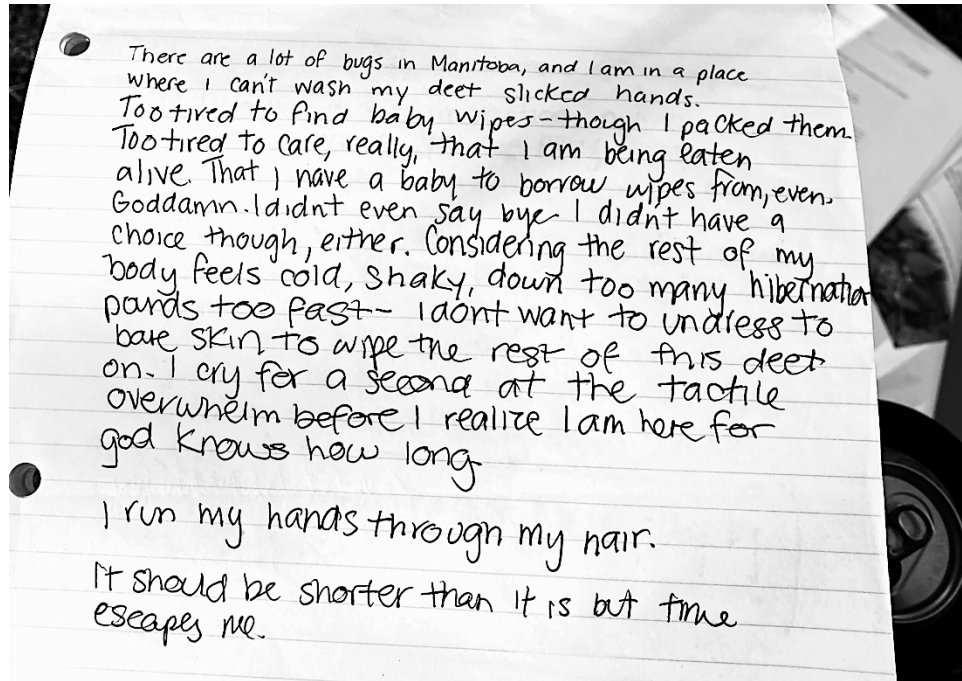 There are a lot of bugs in Manitoba, and I am in a place
where I can't wash my deet slicked hands.
Too tired to find baby wipes - though I packed them.
Too tired to care, really, that I am being eaten
alive. That I have a baby to borrow wipes from, even.
Goddamn. I didnt even say bye. I didnt have a
choice though, either. Considering the rest of my
body feels cold, shaky, down too many hibernation
pounds too fast - I dont want to undress to
bare skin to wipe the rest of this deet
on. I cry for a second at the tactile
overwhelm before I realize I am here for
god knows how long
I run my hands through my hair.
It should be shorter than it is but time
escapes me.